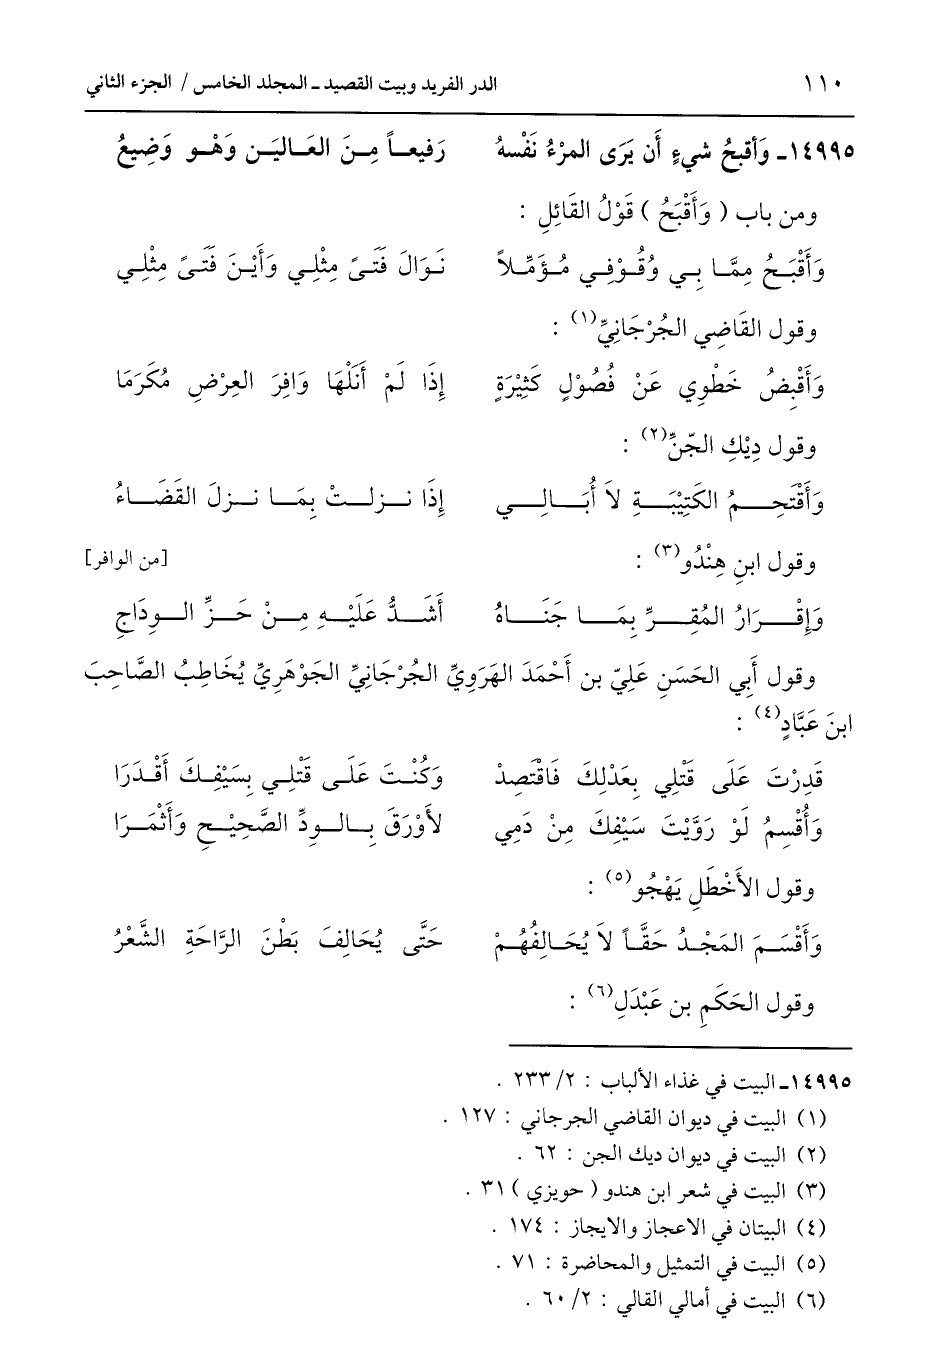 ١١٠ الدر الفريد وبيت القصيد ـ المجلد الخامس / الجزء الثاني
١٤٩٩٥ـ وَأقبحُ شيءٍ أَن يَرَى المرْءُ نَفْسهُ رَفيعاً مِنَ العَاليَن وَهْو وَضِيعُ
ومن باب ( وَأَقْبَحُ ) قَوْلُ القَائِلِ :
وَأَقْبَحُ مِمَّا بِي وُقُوْفِي مُؤَمِّلاً نَوَالَ فَتَىً مِثْلِي وَأَيْنَ فَتَىً مِثْلِي
وقول القَاضِي الجُرْجَانِيِّ(١) :
وَأَقْبِضُ خَطْوِي عَنْ فُصُوْلٍ كَثِيْرَةٍ إِذَا لَمْ أَنَلْهَا وَافِرَ العِرْضِ مُكَرَمَا
وقول دِيْكِ الجّنِّ(٢) :
وَأَقْتَحِمُ الكَتِيْبَةِ لاَ أُبَالِي إِذَا نزلتْ بِمَا نزلَ القَضَاءُ
وقول ابنِ هِنْدُو(٣) : [من الوافر]
وَإِقْرَارُ المُقِرِّ بِمَا جَنَاهُ أَشَدُّ عَلَيْهِ مِنْ حَزِّ الودَاجِ
وقول أَبِي الحَسَنِ عَلِيّ بن أَحْمَدَ الهَرَوِيِّ الجُرْجَانِيِّ الجَوْهَرِيِّ يُخَاطِبُ الصَّاحِبَ
ابنَ عَبَّادٍ(٤) :
قَدِرْتَ عَلَى قَتْلِي بِعَدْلِكَ فَاقْتَصِدْ وَكُنْتَ عَلَى قَتْلِي بِسَيْفِكَ أَقْدَرَا
وَأُقْسِمُ لَوْ رَوَّيْتَ سَيْفِكَ مِنْ دَمِي لأَوْرَقَ بِالودِّ الصَّحِيْحِ وَأَثْمَرَا
وقول الأَخْطَلِ يَهْجُو(٥) :
وَأَقْسَمَ المَجْدُ حَقَّاً لاَ يُحَالِفُهُمْ حَتَّى يُحَالِفَ بَطْنَ الرَّاحَةِ الشَّعْرُ
وقول الحَكَمِ بن عَبْدَلِ(٦) :
١٤٩٩٥ـ البيت في غذاء الألباب : ٢/ ٢٣٣ .
(١) البيت في ديوان القاضي الجرجاني : ١٢٧ .
(٢) البيت في ديوان ديك الجن : ٦٢ .
(٣) البيت في شعر ابن هندو ( حويزي ) ٣١ .
(٤) البيتان في الاعجاز والايجاز : ١٧٤ .
(٥) البيت في التمثيل والمحاضرة : ٧١ .
(٦) البيت في أمالي القالي : ٢/ ٦٠ .